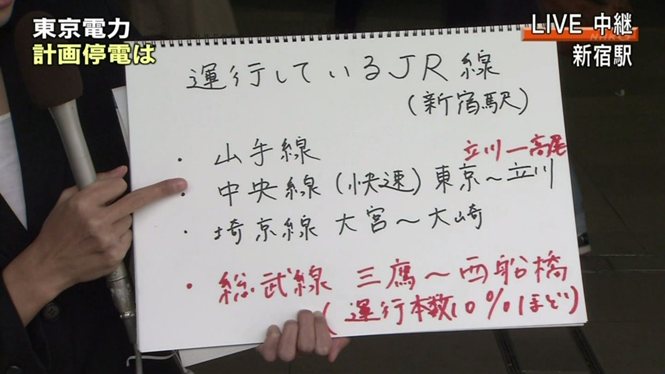 東京電力
計画停電は
LIVE 中継
新宿駅
運行しているJR線
(新宿駅)
・山手線
立川ー高尾
・中央線(快速)東京~立川
・埼京線 大宮~大崎
・総武線 三鷹~西船橋
(運行本数10%ほど)